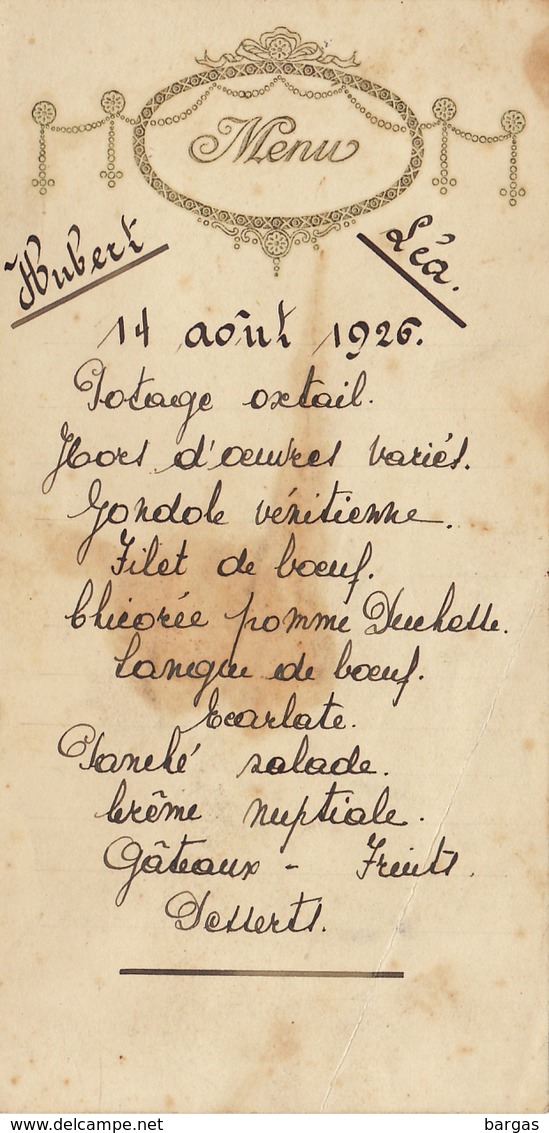 Menu
Hubert
Léa.
14 août 1926.
Potage oxtail.
Hors d'œuvres variés.
Gondole vénitienne.
Filet de bœuf.
Chicorée pomme Duchesse.
Langue de bœuf.
Ecarlate.
salade.
Crême nuptiale.
Gâteaux - Fruits.
Desserts.
delcampe.net
bargas